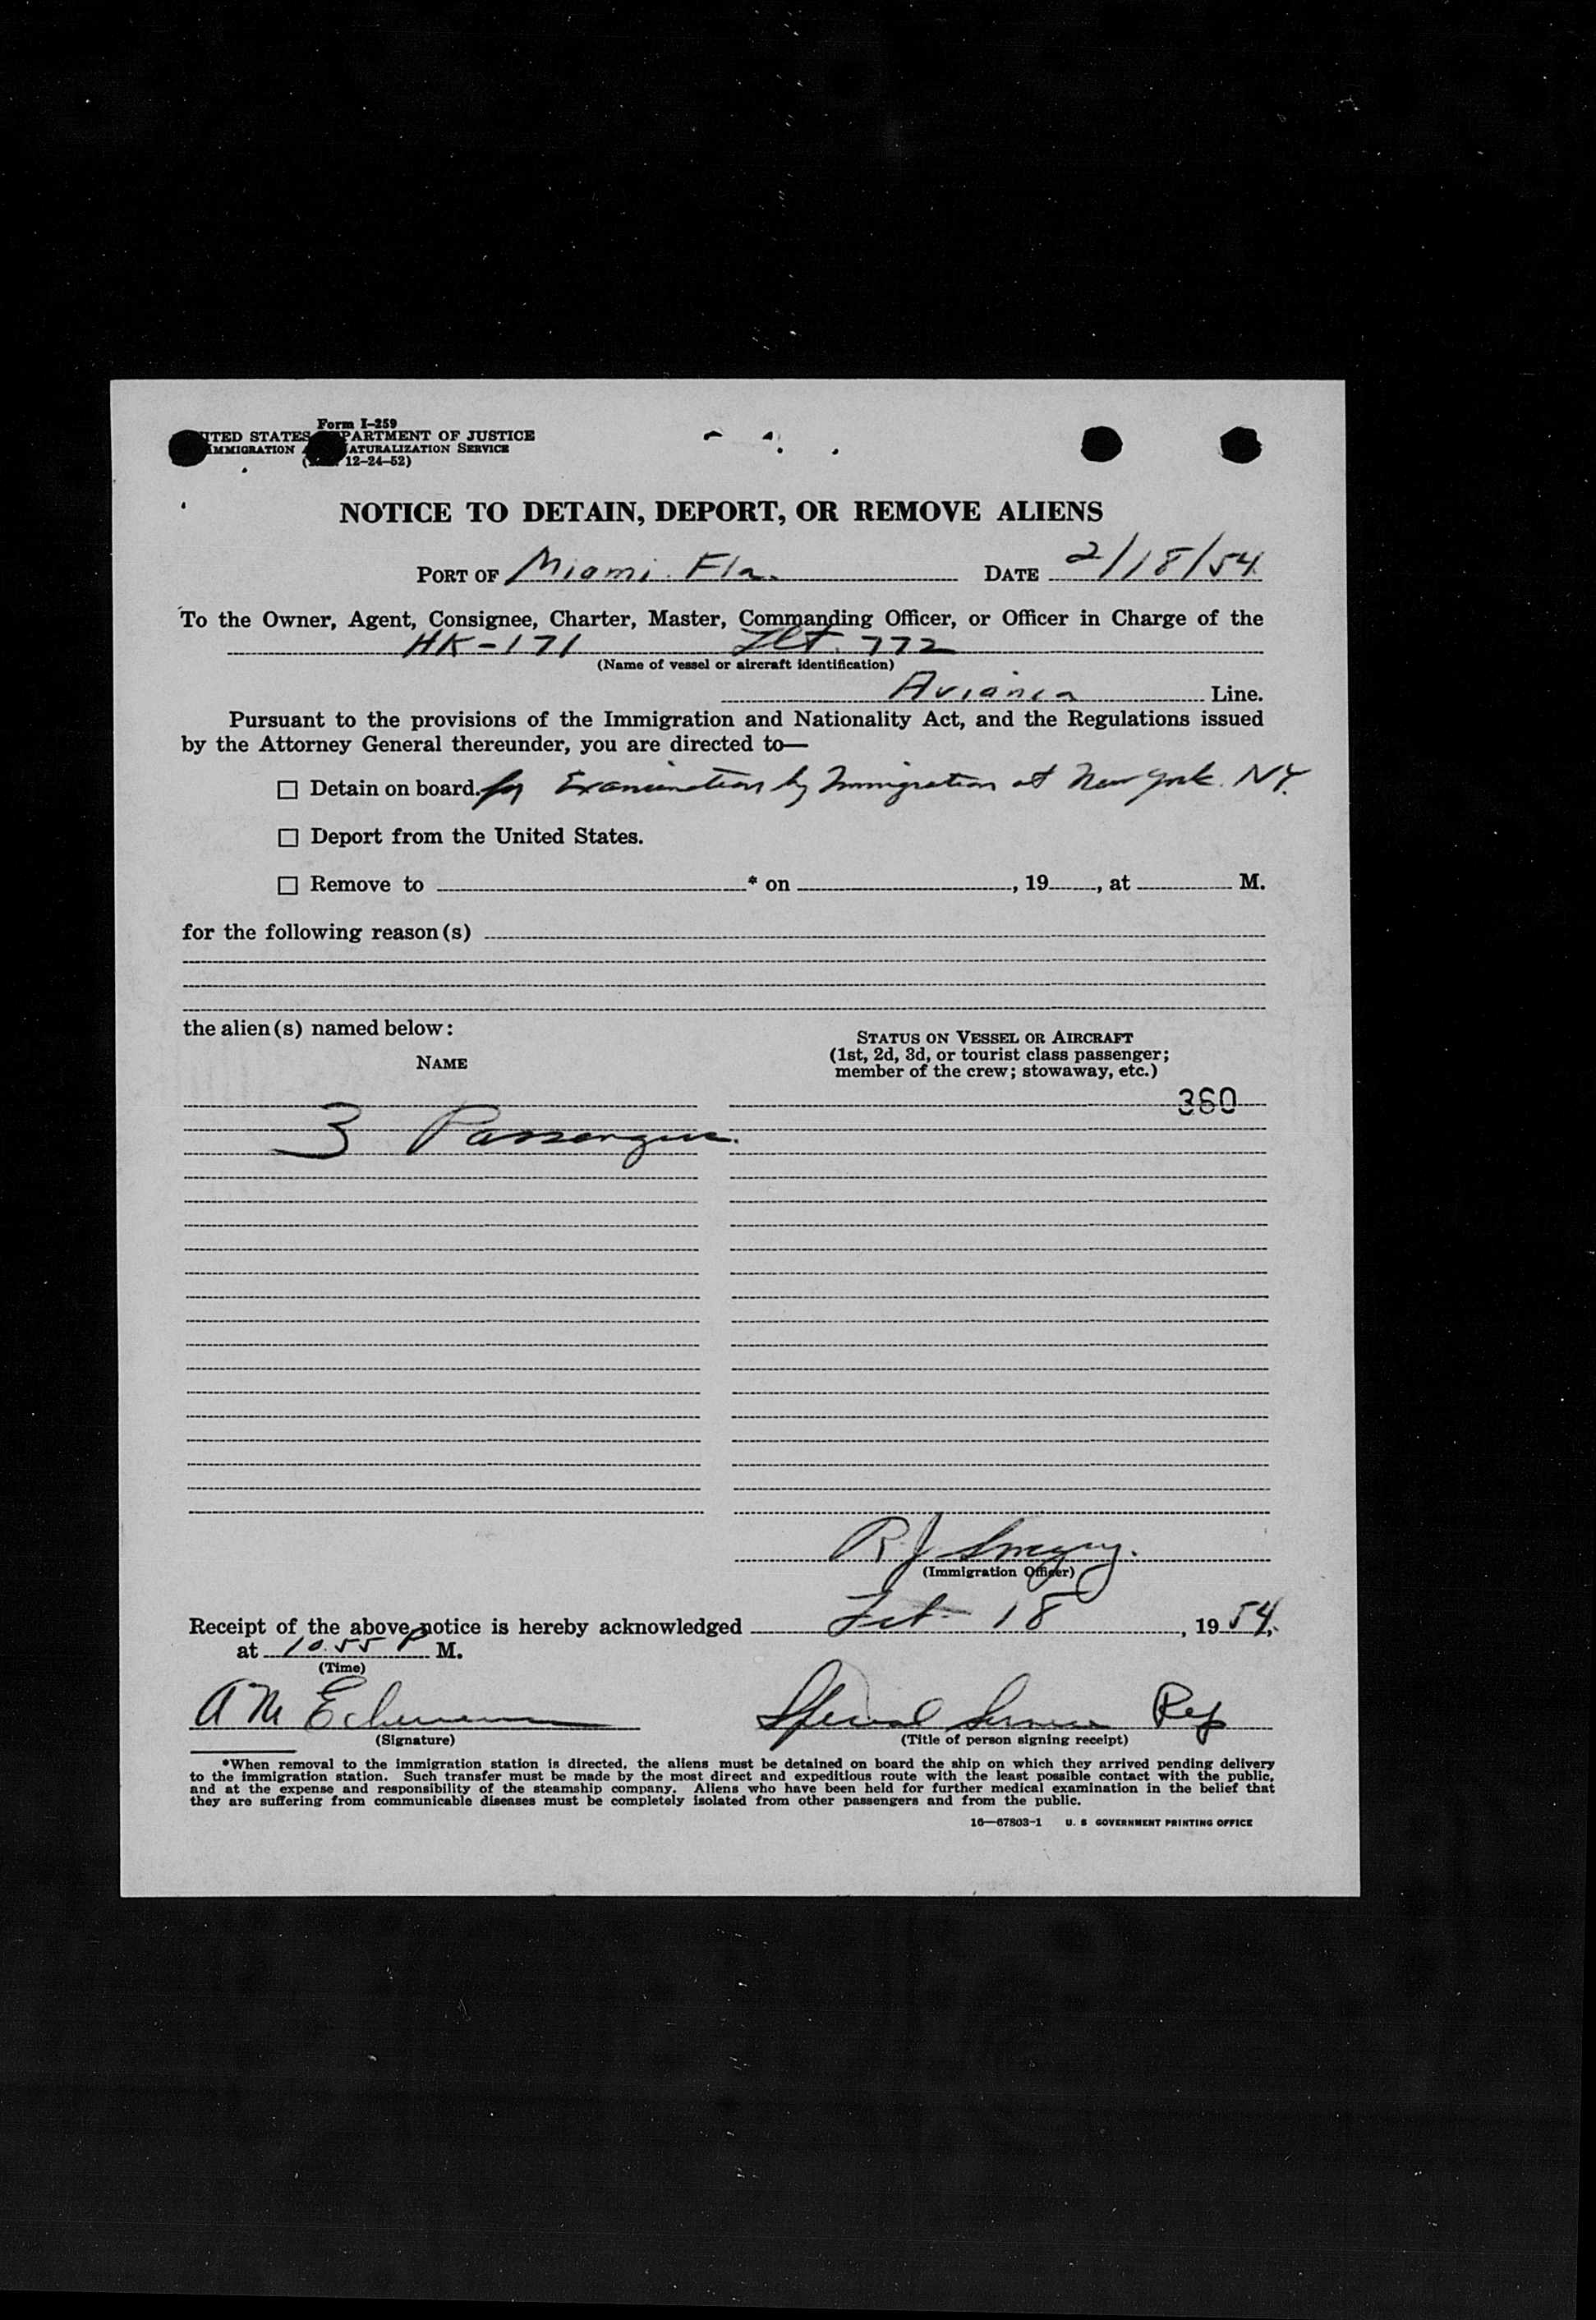 Form I-259
ITED STATES PARTMENT OF JUSTICE
IMMIGRATION ATURALIZATION SERVICE
12-24-52)
NOTICE TO DETAIN, DEPORT, OR REMOVE ALIENS
PORT OF Miami. Fla. DATE 2/18/54
To the Owner, Agent, Consignee, Charter, Master, Commanding Officer, or Officer in Charge of the
HK-171 Flt. 772
(Name of vessel or aircraft identification)
Avianca Line.
Pursuant to the provisions of the Immigration and Nationality Act, and the Regulations issued
by the Attorney General thereunder, you are directed to—
☐ Detain on board. for Examination by Immigration at New York. NY.
☐ Deport from the United States.
☐ Remove to * on , 19 , at M.
for the following reason(s)
the alien(s) named below:
STATUS ON VESSEL OR AIRCRAFT
NAME
(1st, 2d, 3d, or tourist class passenger;
member of the crew; stowaway, etc.)
360
3 Passengers.
R. J.
(Immigration Officer)
Receipt of the above notice is hereby acknowledged Feb. 18, 1954,
at 10.55 P M.
(Time)
A M Special Service Rep
(Signature) (Title of person signing receipt)
*When removal to the immigration station is directed, the aliens must be detained on board the ship on which they arrived pending delivery
to the immigration station. Such transfer must be made by the most direct and expeditious route with the least possible contact with the public,
and at the expense and responsibility of the steamship company. Aliens who have been held for further medical examination in the belief that
they are suffering from communicable diseases must be completely isolated from other passengers and from the public.
16—67803-1 U. S GOVERNMENT PRINTING OFFICE